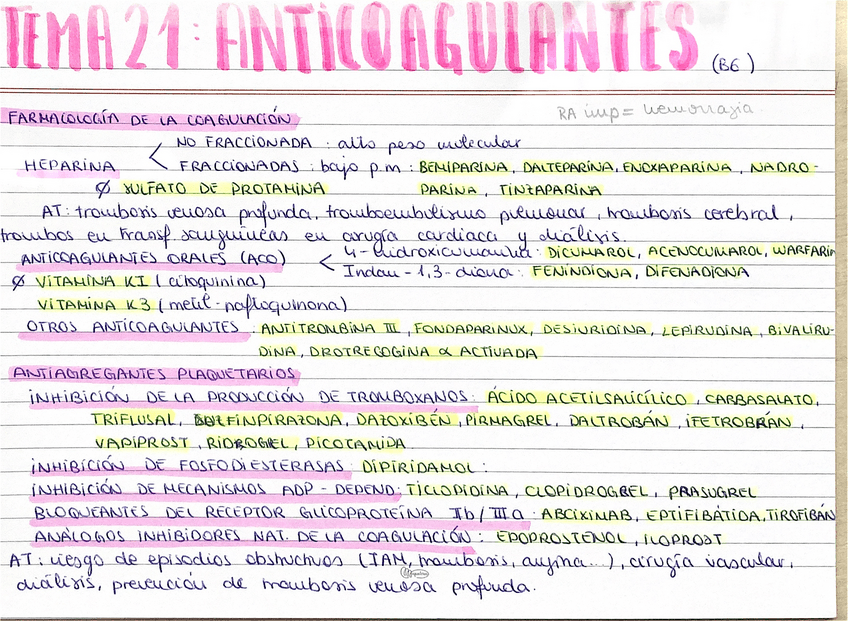 TEMA 21: ANTICOAGULANTES (B6)
FARMACOLOGÍA DE LA COAGULACIÓN
RA imp = hemorragia
NO FRACCIONADA : alto peso molecular
HEPARINA < FRACCIONADAS : bajo p.m : BEMIPARINA, DALTEPARINA, ENOXAPARINA, NADRO-
Ø SULFATO DE PROTAMINA PARINA, TINZAPARINA
AT: trombosis venosa profunda, tromboembolismo pulmonar, trombosis cerebral,
trombos en transf. sanguíneas en cirugía cardiaca y diálisis.
ANTICOAGULANTES ORALES (ACO) < 4-hidroxicumarina: DICUMAROL, ACENOCUMAROL, WARFARIN
Ø VITAMINA K1 (fitoquinina) Indan-1,3-diona: FENINDIONA, DIFENADIONA
VITAMINA K3 (metil-naftoquinona)
OTROS ANTICOAGULANTES : ANTITROMBINA III, FONDAPARINUX, DESIURIDINA, LEPIRUDINA, BIVALIRU-
DINA, DROTRECOGINA α ACTIVADA
ANTIAGREGANTES PLAQUETARIOS
INHIBICIÓN DE LA PRODUCCIÓN DE TROMBOXANOS: ÁCIDO ACETILSALICÍLICO, CARBASALATO,
TRIFLUSAL, SULFINPIRAZONA, DAZOXIBÉN, PIRMAGREL, DALTROBÁN, IFETROBRÁN,
VAPIPROST, RIDROGREL, PICOTAMIDA
INHIBICIÓN DE FOSFODIESTERASAS: DIPIRIDAMOL:
INHIBICIÓN DE MECANISMOS ADP-DEPEND: TICLOPIDINA, CLOPIDROGREL, PRASUGREL
BLOQUEANTES DEL RECEPTOR GLICOPROTEÍNA IIb/IIIa : ABCIXINAB, EPTIFIBÁTIDA, TIROFIBÁN
ANÁLOGOS INHIBIDORES NAT. DE LA COAGULACIÓN: EPOPROSTENOL, ILOPROST
AT: riesgo de episodios obstructivos (IAM, trombosis, angina...), cirugía vascular,
diálisis, prevención de trombosis venosa profunda.